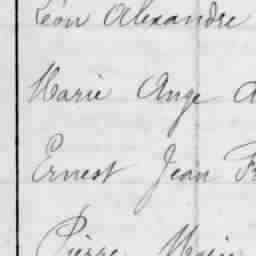 Léon Alexandre
Marie Ange
Ernest Jean
Pierre Marie